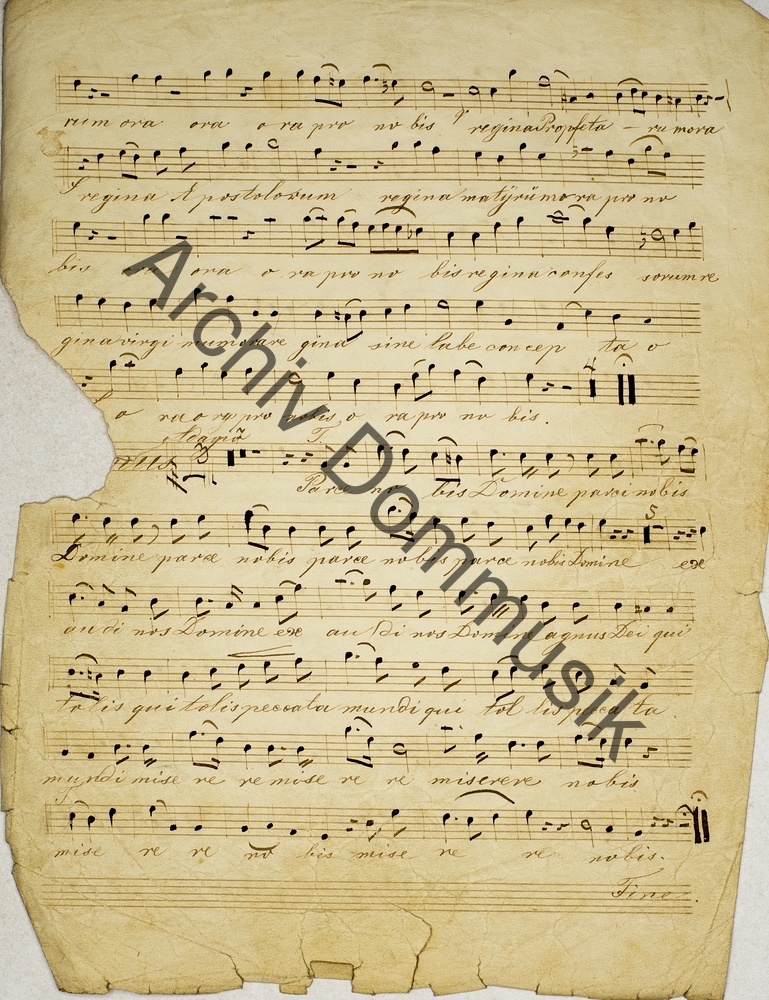 rum ora ora o ra pro no bis regina Propfeta - ru mora
regina Apostolorum regina matÿrŭm o ra pro no
bis ora ora o ra pro no bis regina confes sorum re
gina virgi num orare gina sine labe concep ta o
o ra o ra pro nobis o ra pro no bis.
Adagio T.
Parce no bis Domine parci nobis
5
Domine parce nobis parce nobis parce nobis Domine ex
au di nos Domine ex au di nos Domine agnus Dei qui
tolis qui tolis peccata mundi qui tol lis pecca ta
mundi mise re re mise re re miserere nobis
mise re re no bis mise re re nobis.
Fine.
Archiv Dommusik